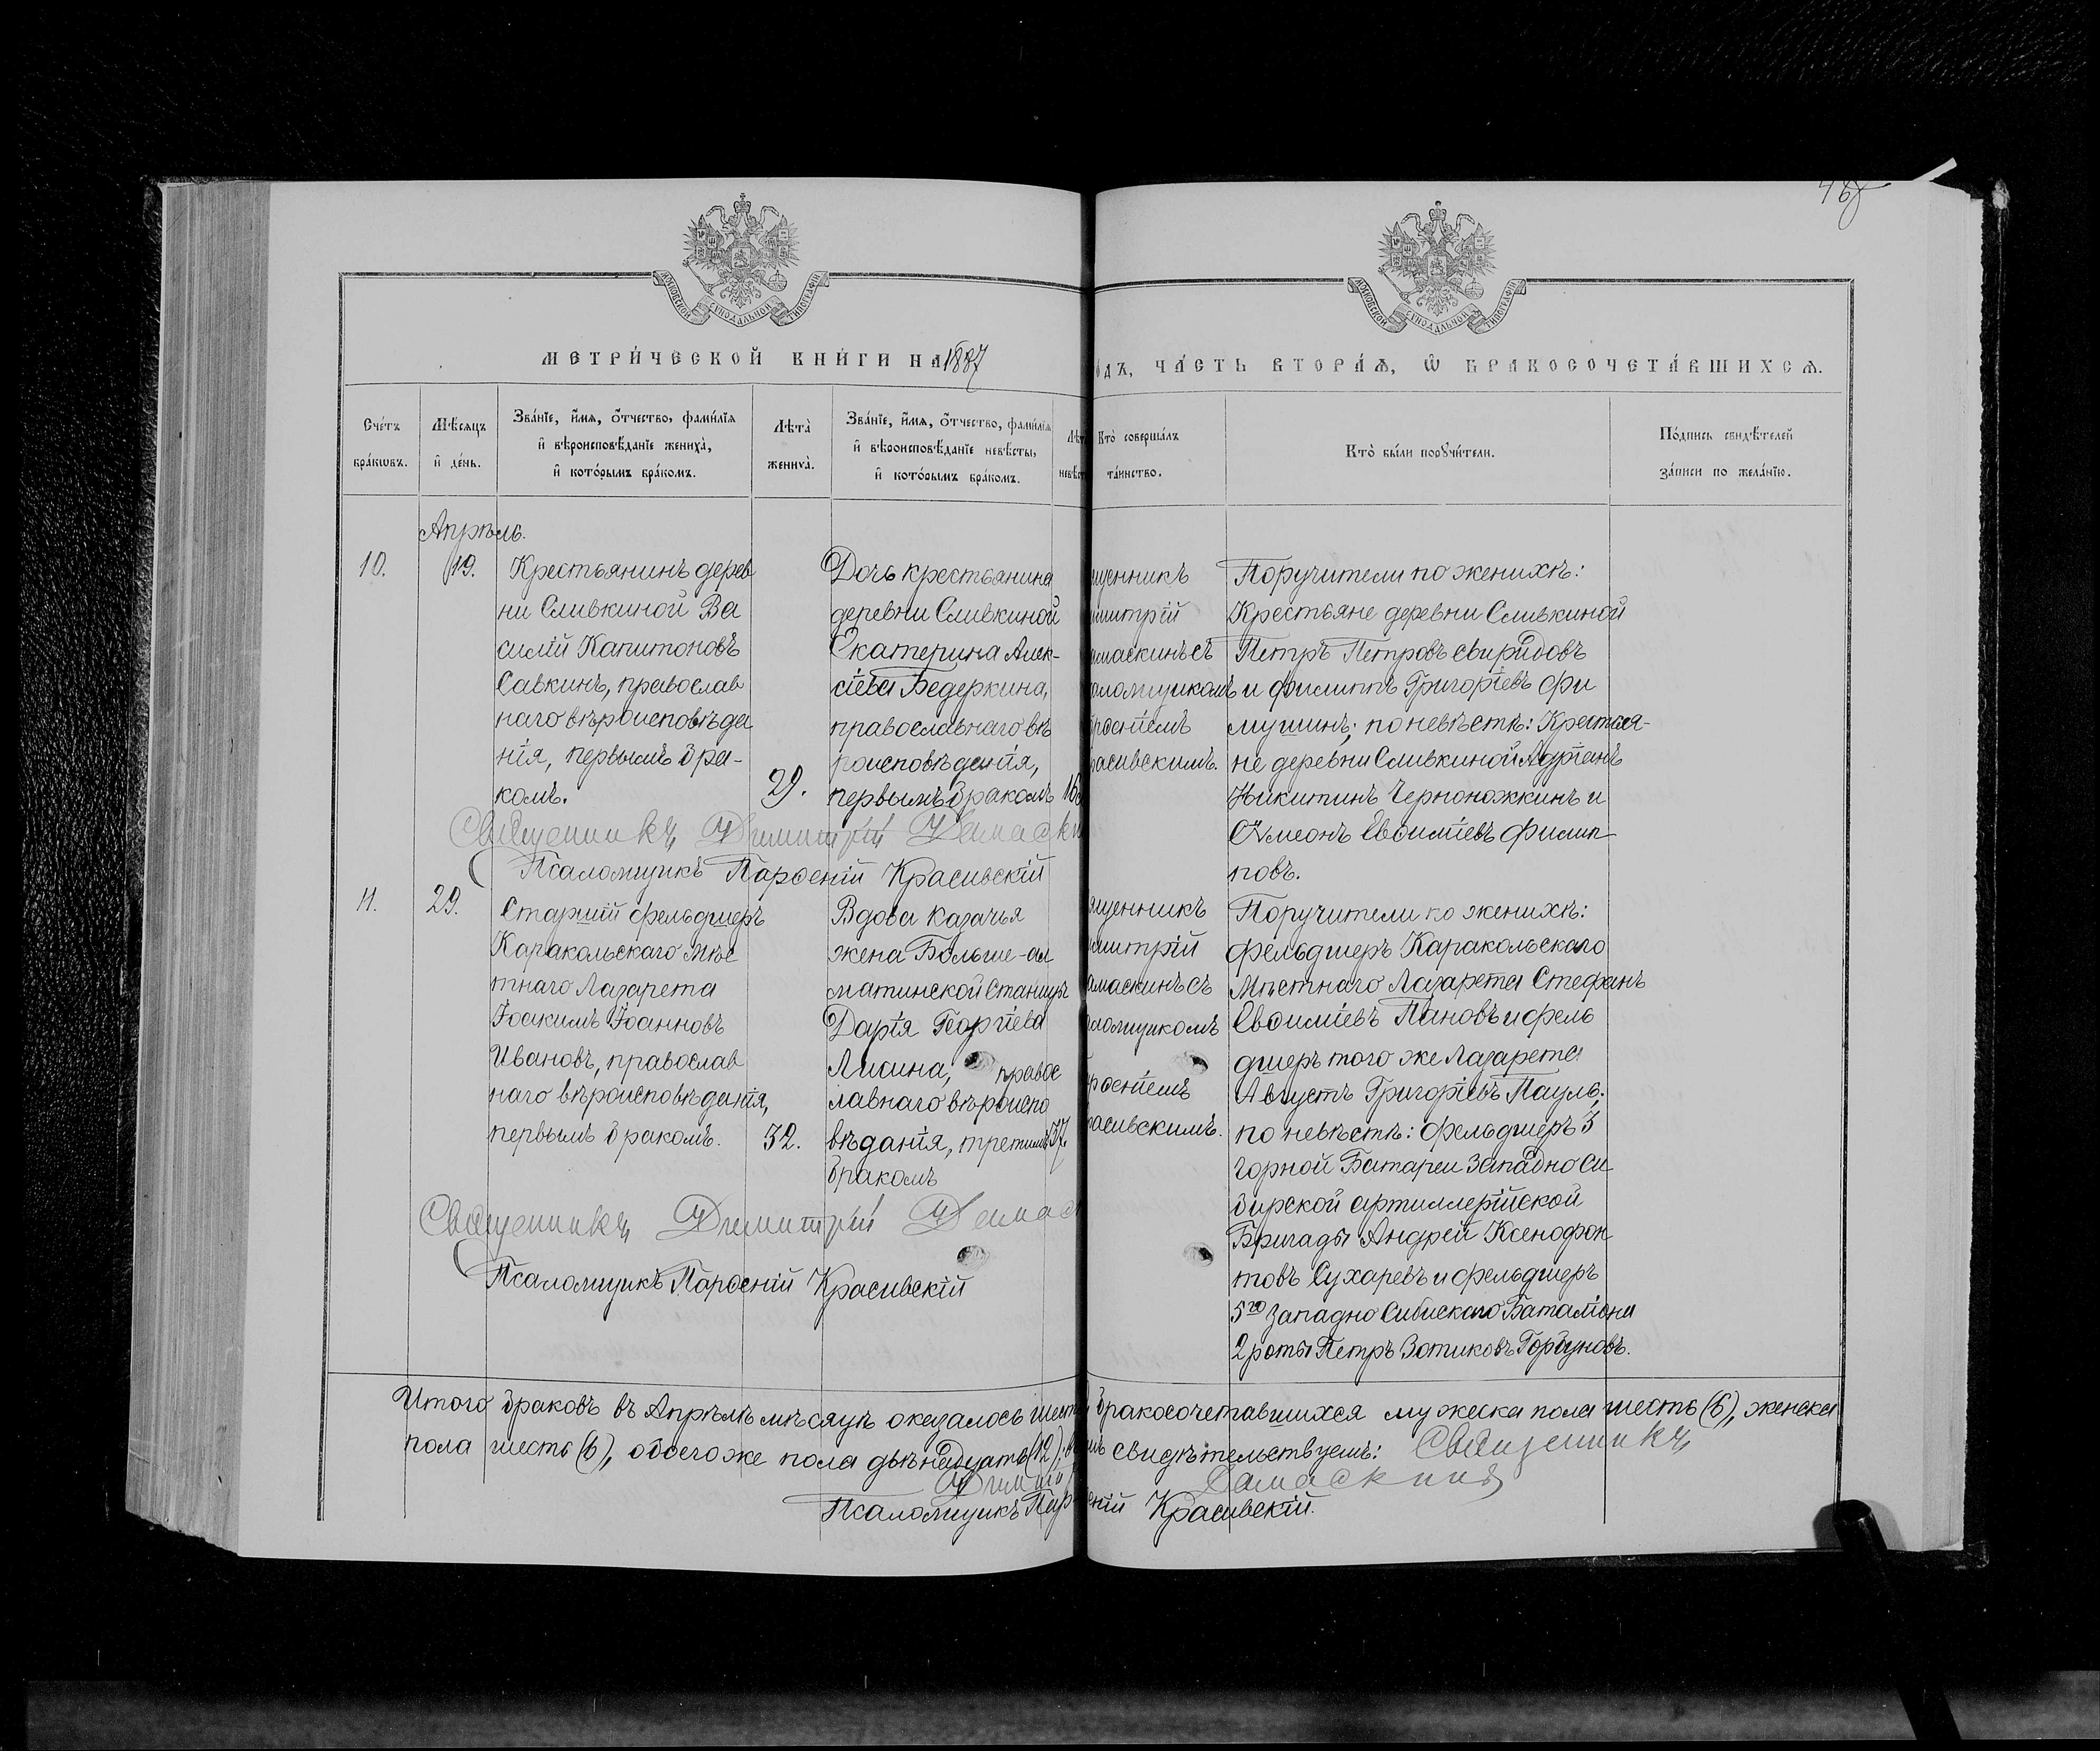 МОСКОВСКОЙ СѴНОДАЛЬНОЙ ТИПОГРАФІИ
МОСКОВСКОЙ СѴНОДАЛЬНОЙ ТИПОГРАФІИ
МЕТРИ́ЧЕСКОЙ КНИ́ГИ НА 1887
ОДЪ, ЧА́СТЬ ВТОРА́Ѧ, Ѽ БРАКОСОЧЕТА́ВШИХСѦ.
Сче́тъ бра́кѡвъ.
Мѣ́сѧцъ и҆ де́нь.
Зва́нїе, и҆́мѧ, ѻ҆́тчество, фами́лїѧ
и҆ вѣроисповѣ́данїе жениха̀,
и҆ кото́рымъ бра́комъ.
Лѣта̀ жениха̀.
Зва́нїе, и҆́мѧ, ѻ҆́тчество, фами́лїѧ
и҆ вѣроисповѣ́данїе невѣ́сты,
и҆ кото́рымъ бра́комъ.
Лѣт
невѣст
Кто̀ соверша́лъ
та́инство.
Кто̀ бы́ли порꙋчи́тели.
По́дпись свидѣ́телей
за́писи по жела́нїю.
Апрѣль.
10.
19.
Крестьянинъ дерев
ни Сливкиной Ва
силій Капитоновъ
Савкинъ, православ
наго вѣроисповѣда
нія, первымъ бра-
комъ.
29.
Дочь крестьянина
деревни Сливкиной
Екатерина Алек-
сіева Бедеркина,
православнаго вѣ
роисповѣданія,
первымъ бракомъ
16
щенникъ
имитрій
амаскинъ съ
аломщикомъ
рѳеніемъ
расивскимъ.
Поручители по женихѣ:
Крестьяне деревни Сливкиной
Петръ Петровъ Свиридовъ
и Филиппъ Григоріевъ Фи
мушинъ; по невѣстѣ: Крестья-
не деревни Сливкиной Адріанъ
Никитинъ Черноножкинъ и
Сѵмеонъ Евѳиміевъ Филип
повъ.
Священникъ Димитрій Дамаски
Псаломщикъ Парѳеній Красивскій
11.
29.
Старшій фельдшеръ
Каракольскаго Мѣс
тнаго Лазарета
Іоакимъ Іоанновъ
Ивановъ, православ
наго вѣроисповѣданія,
первымъ бракомъ.
32.
Вдова казачья
жена Больше-ал
матинской Станицы
Дарія Георгіева
Лисина, правос
лавнаго вѣроиспо
вѣданія, третимъ
бракомъ
37.
ященникъ
имитрій
амаскинъ съ
аломщикомъ
рѳеніемъ
расивскимъ.
Поручители по женихѣ:
фельдшеръ Каракольскаго
Мѣстнаго Лазарета Стефанъ
Евѳиміевъ Пановъ и фель
дшеръ того же Лазарета
Августъ Григоріевъ Пауль;
по невѣстѣ: фельдшеръ 3
горной Батареи Западно Си
бирской артиллерійской
Бригады Андрей Ксенофон
товъ Сухаревъ и фельдшеръ
5го Западно Сибискаго Баталіона
2 роты Петръ Зотиковъ Горбуновъ.
Священникъ Димитрій Дамас
Псаломщикъ Парѳеній Красивскій
Итого браковъ въ Апрѣлѣ мѣсяцѣ оказалось шест бракосочетавшихся мужеска пола шесть (6), женска
пола шесть (6), обоего же пола двѣнадцать (12), свидѣтельствуемъ: Священникъ
Димит Дамаскинъ
Псаломщикъ Пар еній Красивскій.